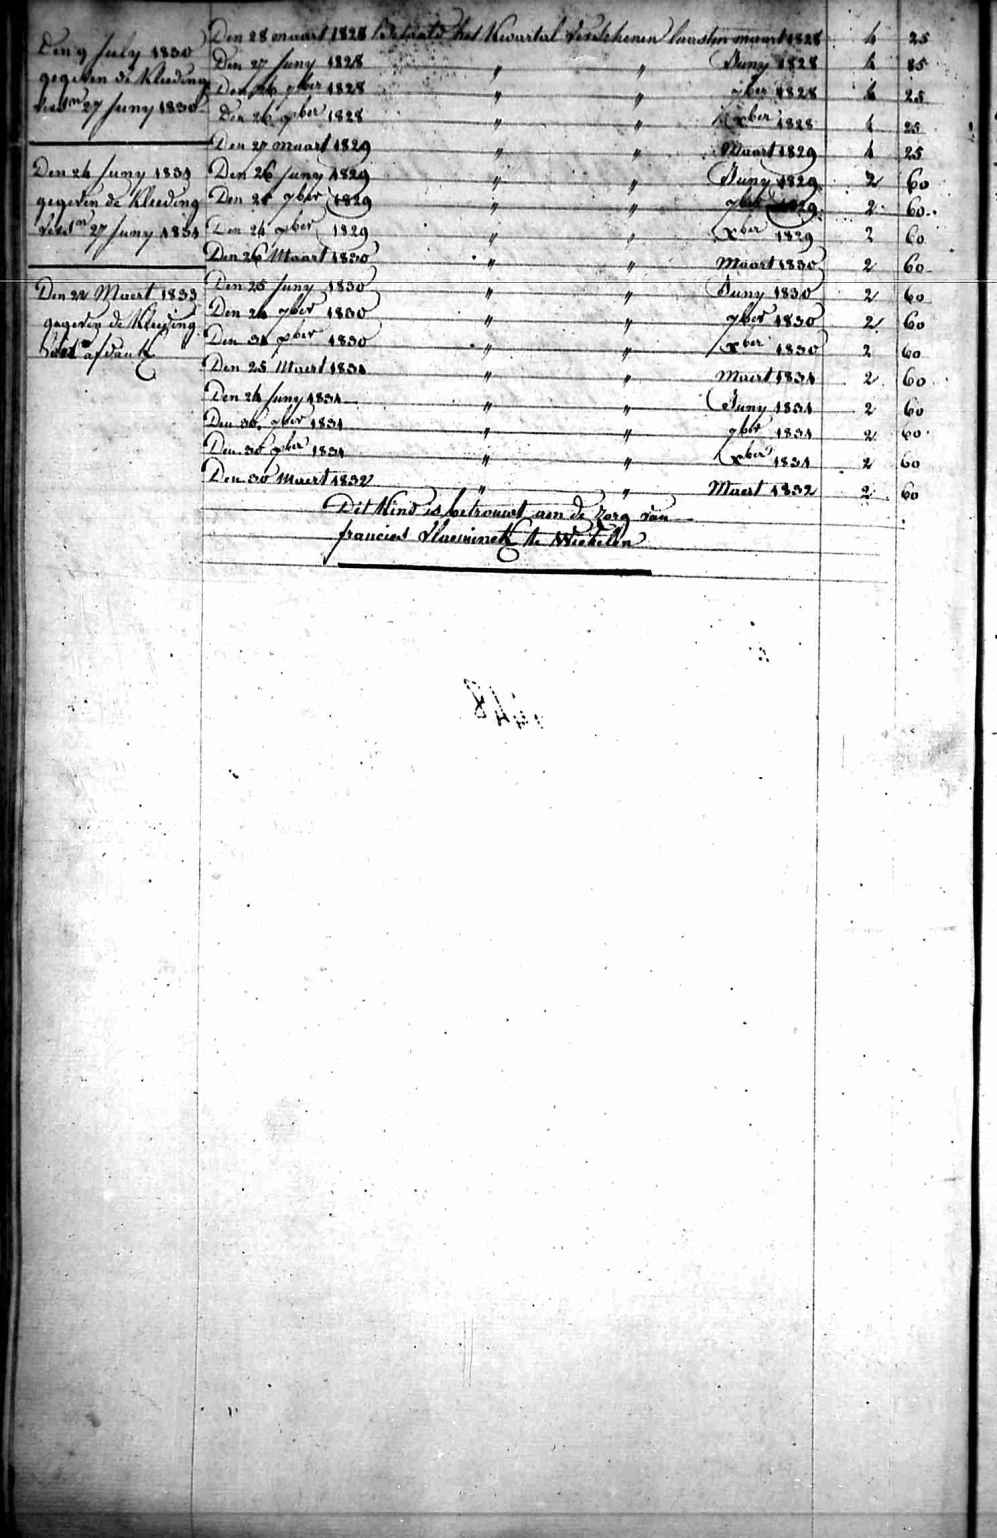 Den 9 July 1830
gegeven de Kleeding
27 Juny 1830
Den 24 Juny 1831
gegeven de Kleeding
27 Juny 1831
Den 22 Maert 1833
gegeven de Kleeding
Den 28 maart 1828 Betaald het Kwartal verschenen laasten maart 1828 4 25
Den 27 Juny 1828 " " Juny 1828 4 25
Den 26 7ber 1828 " " 7ber 1828 4 25
Den 26 xber 1828 " " xber 1828 4 25
Den 27 maart 1829 " " Maart 1829 4 25
Den 26 Juny 1829 " " Juny 1829 2 60
Den 25 7ber 1829 " " 7ber 1829 2 60
Den 24 xber 1829 " " xber 1829 2 60
Den 26 Maart 1830 " " Maart 1830 2 60
Den 25 Juny 1830 " " Juny 1830 2 60
Den 24 7ber 1830 " " 7ber 1830 2 60
Den 31 xber 1830 " " xber 1830 2 60
Den 25 Maert 1831 " " Maert 1831 2 60
Den 24 Juny 1831 " " Juny 1831 2 60
Den 30 7ber 1831 " " 7ber 1831 2 60
Den 30 xber 1831 " " xber 1831 2 60
Den 30 Maert 1832 " " Maert 1832 2 60
Dit Kind is betrouwt aen de zorg van
francies Vlaeminck te Wichelen